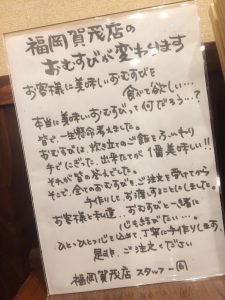 福岡賀茂店の
おむすびが変わります
お客様に美味しいおむすびを
食べて欲しい…
本当に美味しいおむすびって何だろう…?
皆で一生懸命考えました。
おむすびは、炊立てのご飯をふんわり
手でにぎった、出来たてが1番美味しい!!
それが皆の答えでした。
そこで、全てのおむすびを、ご注文を受けてから
手作りして、お渡しすることにしました。
お客様と私達…おむすびと一緒に
心も結びたい…。
ひとつひとつ心を込めて、丁寧に手作りします。
是非、ご注文ください
福岡賀茂店 スタッフ一同